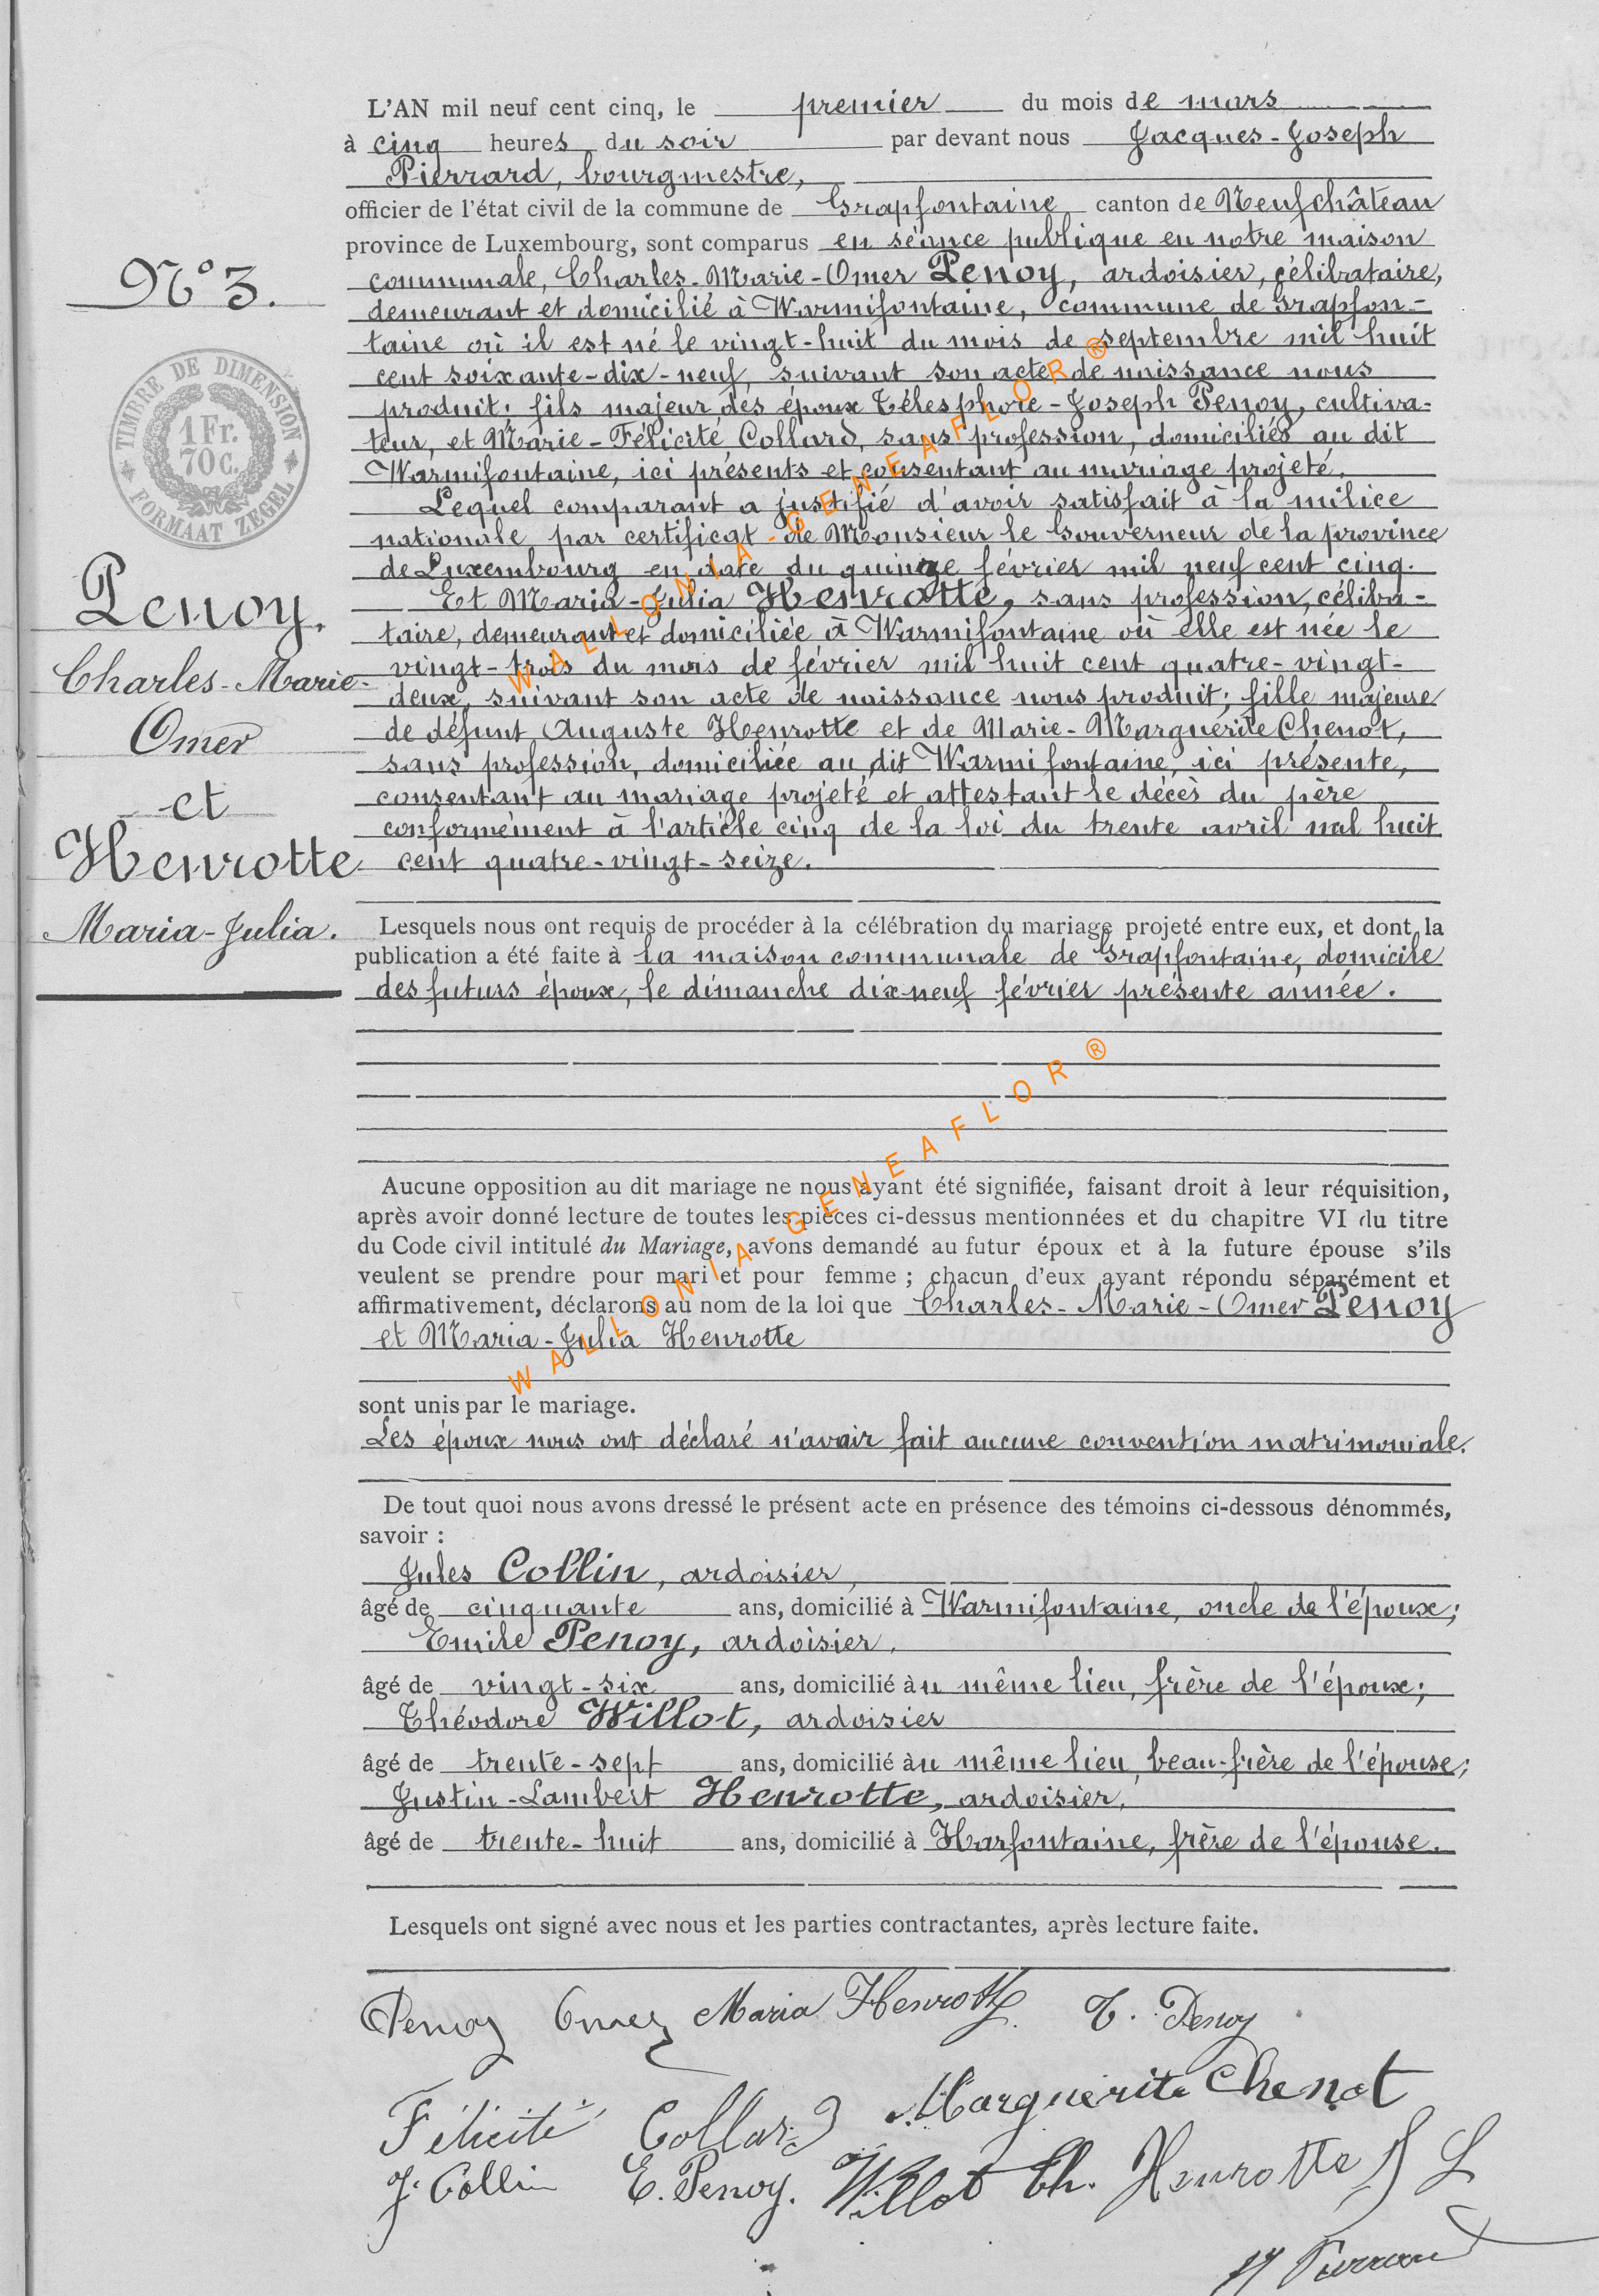 L'AN mil neuf cent cinq, le premier du mois de mars
à cinq heures du soir par devant nous Jacques-Joseph
Pierrard, bourgmestre,
officier de l'état civil de la commune de Grapfontaine canton de Neufchâteau
province de Luxembourg, sont comparus en séance publique en notre maison
communale, Charles-Marie-Omer Penoy, ardoisier, célibataire,
demeurant et domicilié à Warmifontaine, commune de Grapfon-
taine où il est né le vingt-huit du mois de septembre mil huit
cent soixante-dix-neuf, suivant son acte de naissance nous
produit; fils majeur des époux Télesphore-Joseph Penoy, cultiva-
teur, et Marie-Félicité Collard, sans profession, domiciliés au dit
Warmifontaine, ici présents et consentant au mariage projeté.
Lequel comparant a justifié d'avoir satisfait à la milice
nationale par certificat de Monsieur le Gouverneur de la province
de Luxembourg en date du quinze février mil neuf cent cinq.
Et Maria-Julia Henrotte, sans profession, céliba-
taire, demeurant et domiciliée à Warmifontaine où elle est née le
vingt-trois du mois de février mil huit cent quatre-vingt-
deux, suivant son acte de naissance nous produit; fille majeure
de défunt Auguste Henrotte et de Marie-Marguerite Chenot,
sans profession, domiciliée au dit Warmifontaine, ici présente,
consentant au mariage projeté et attestant le décès du père
conformément à l'article cinq de la loi du trente avril mil huit
cent quatre-vingt-seize.
N° 3.
TIMBRE DE DIMENSION
1 Fr.
70 c.
FORMAAT ZEGEL
Penoy.
Charles-Marie-
Omer
et
Henrotte
Maria-Julia.
Lesquels nous ont requis de procéder à la célébration du mariage projeté entre eux, et dont la
publication a été faite à la maison communale de Grapfontaine, domicile
des futurs époux, le dimanche dix neuf février présente année.
Aucune opposition au dit mariage ne nous ayant été signifiée, faisant droit à leur réquisition,
après avoir donné lecture de toutes les pièces ci-dessus mentionnées et du chapitre VI du titre
du Code civil intitulé du Mariage, avons demandé au futur époux et à la future épouse s'ils
veulent se prendre pour mari et pour femme ; chacun d'eux ayant répondu séparément et
affirmativement, déclarons au nom de la loi que Charles-Marie-Omer Penoy
et Maria-Julia Henrotte
sont unis par le mariage.
Les époux nous ont déclaré n'avoir fait aucune convention matrimoniale.
De tout quoi nous avons dressé le présent acte en présence des témoins ci-dessous dénommés,
savoir :
Jules Collin, ardoisier,
âgé de cinquante ans, domicilié à Warmifontaine, oncle de l'époux;
Emile Penoy, ardoisier,
âgé de vingt-six ans, domicilié àu même lieu, frère de l'époux;
Théodore Willot, ardoisier
âgé de trente-sept ans, domicilié àu même lieu, beau-frère de l'épouse;
Justin-Lambert Henrotte, ardoisier,
âgé de trente-huit ans, domicilié à Harfontaine, frère de l'épouse.
Lesquels ont signé avec nous et les parties contractantes, après lecture faite.
Penoy Omer Maria Henrotte T. Penoy
Félicité Collard Marguerite Chenot
J. Collin E. Penoy. Willot Th. Henrotte J L
Pierrard
WALLONIA-GENEAFLOR ®
WALLONIA-GENEAFLOR ®